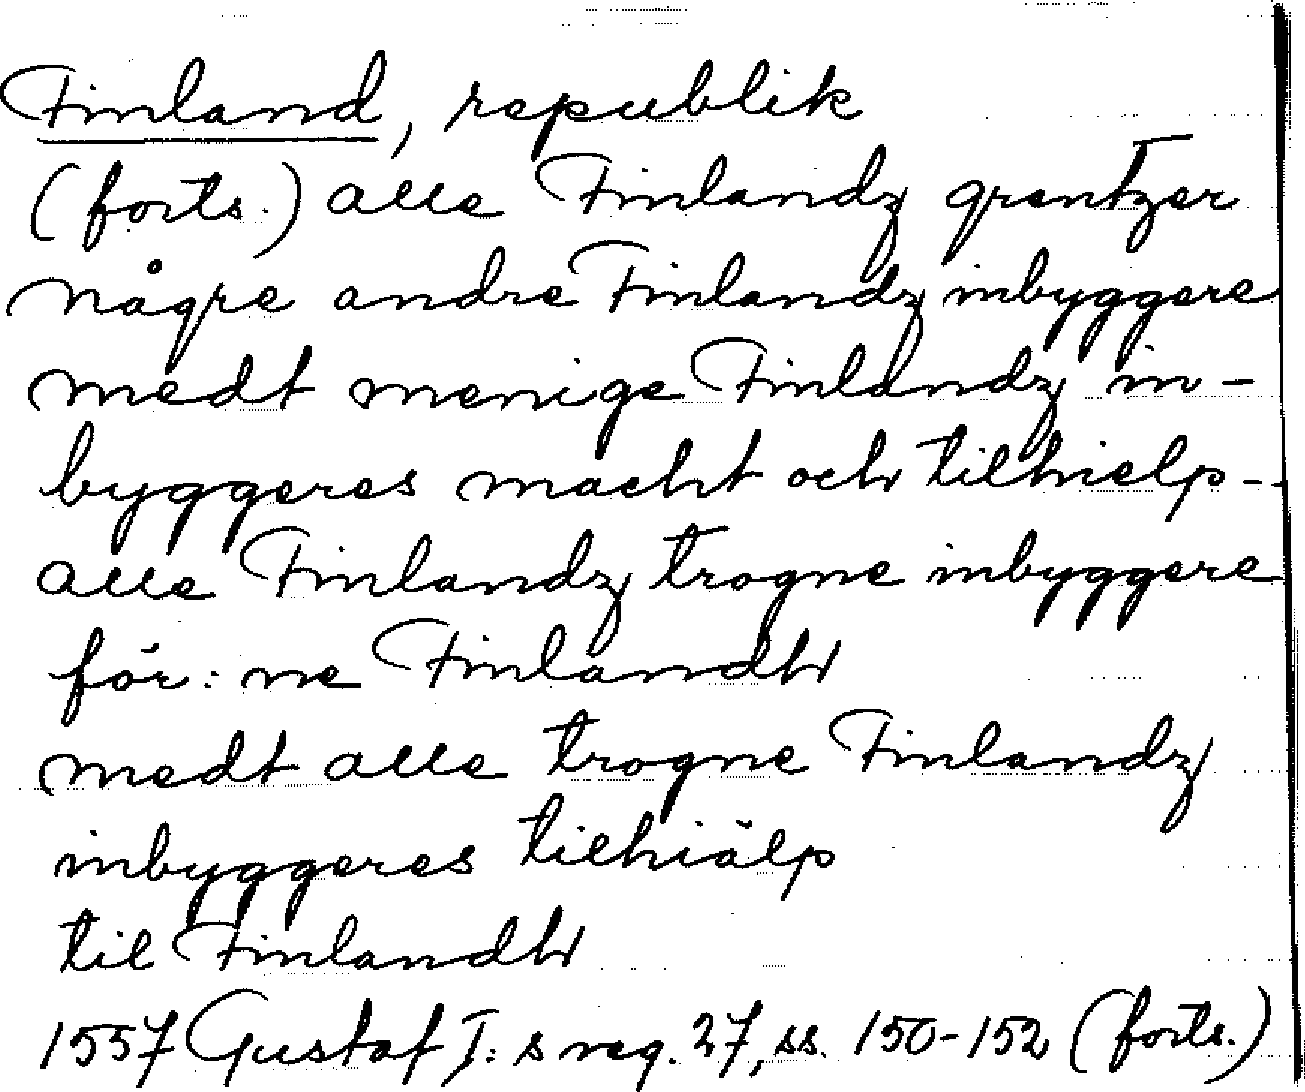 Finland, republik
(forts.) alle Finlandz grentzer
någre andre Finlandz inbyggere
medt menige Finlandz in-
byggeres macht och tilhielp -
alle Finlandz trogne inbyggere
för: ne Finlandh
medt alle trogne Finlandz
inbyggeres tilhiälp
til Finlandh
1557 Gustaf I: s reg. 27, ss. 150-152 (forts.)